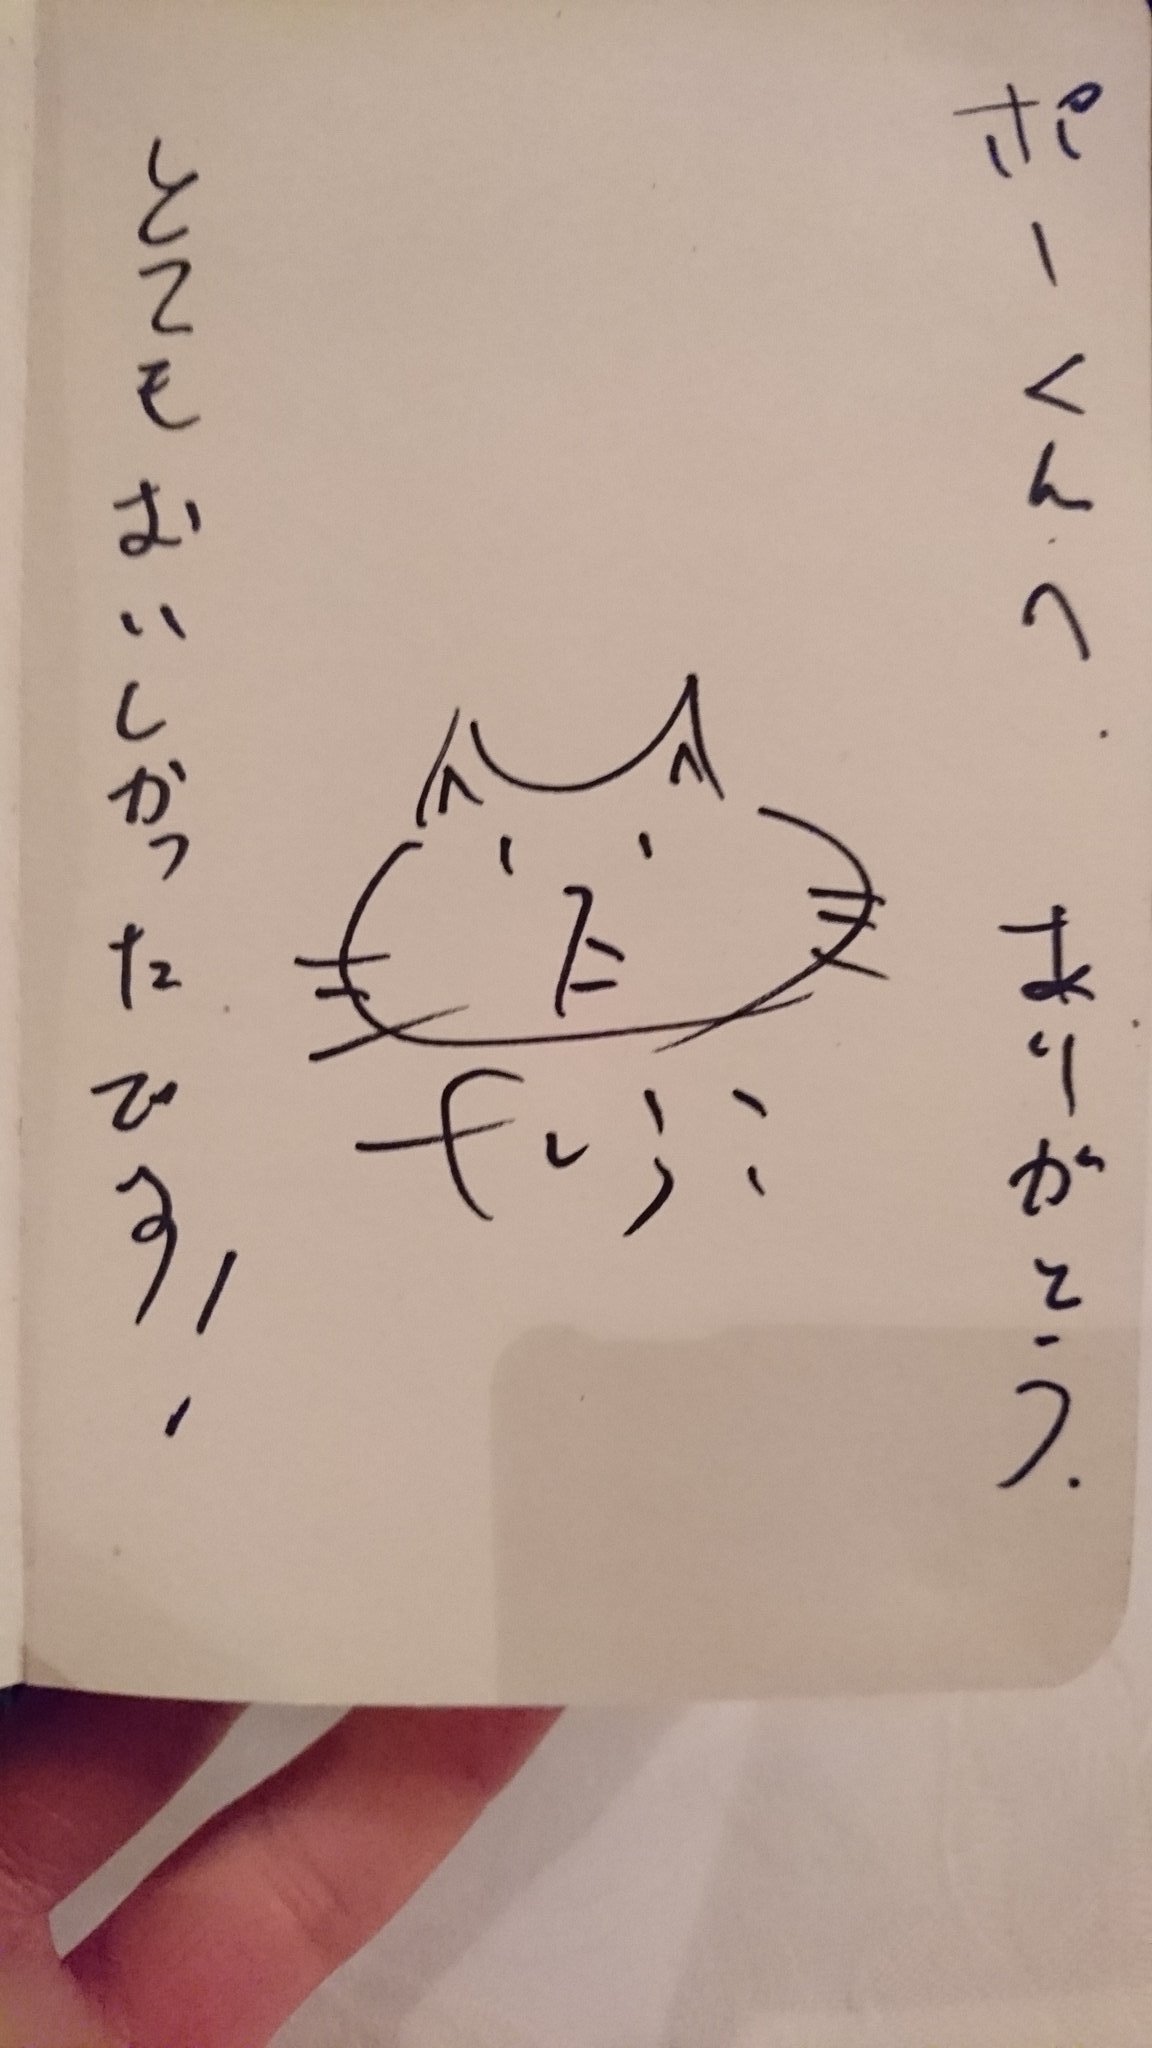 ポーくんへ. ありがとう.
fuji
とてもおいしかったです!